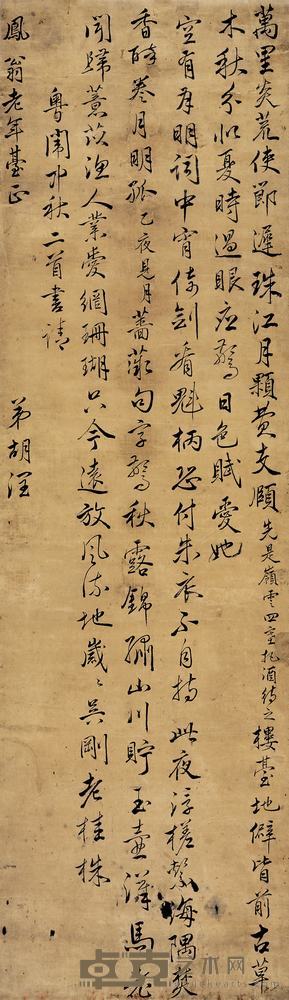 萬里炎荒使節遲珠江月顆費支頤先是嶺雲四塞扎酒待之樓臺地僻皆前古草
木秋分似夏時過眼應驚日色賦愛她
空有月明詞中宵倚劍看魁柄恐付朱衣不自持此夜浮槎繫海隅焚
香醉卷月明孤乙夜見月薔薇句字驚秋露錦繡山川貯玉壺漢馬
聞歸薏苡漁人業愛網珊瑚只今遠放風流地歲歲吳剛老桂株
粵闈中秋二首書請
鳳翁老年臺正
弟胡潤
卓克艺术网